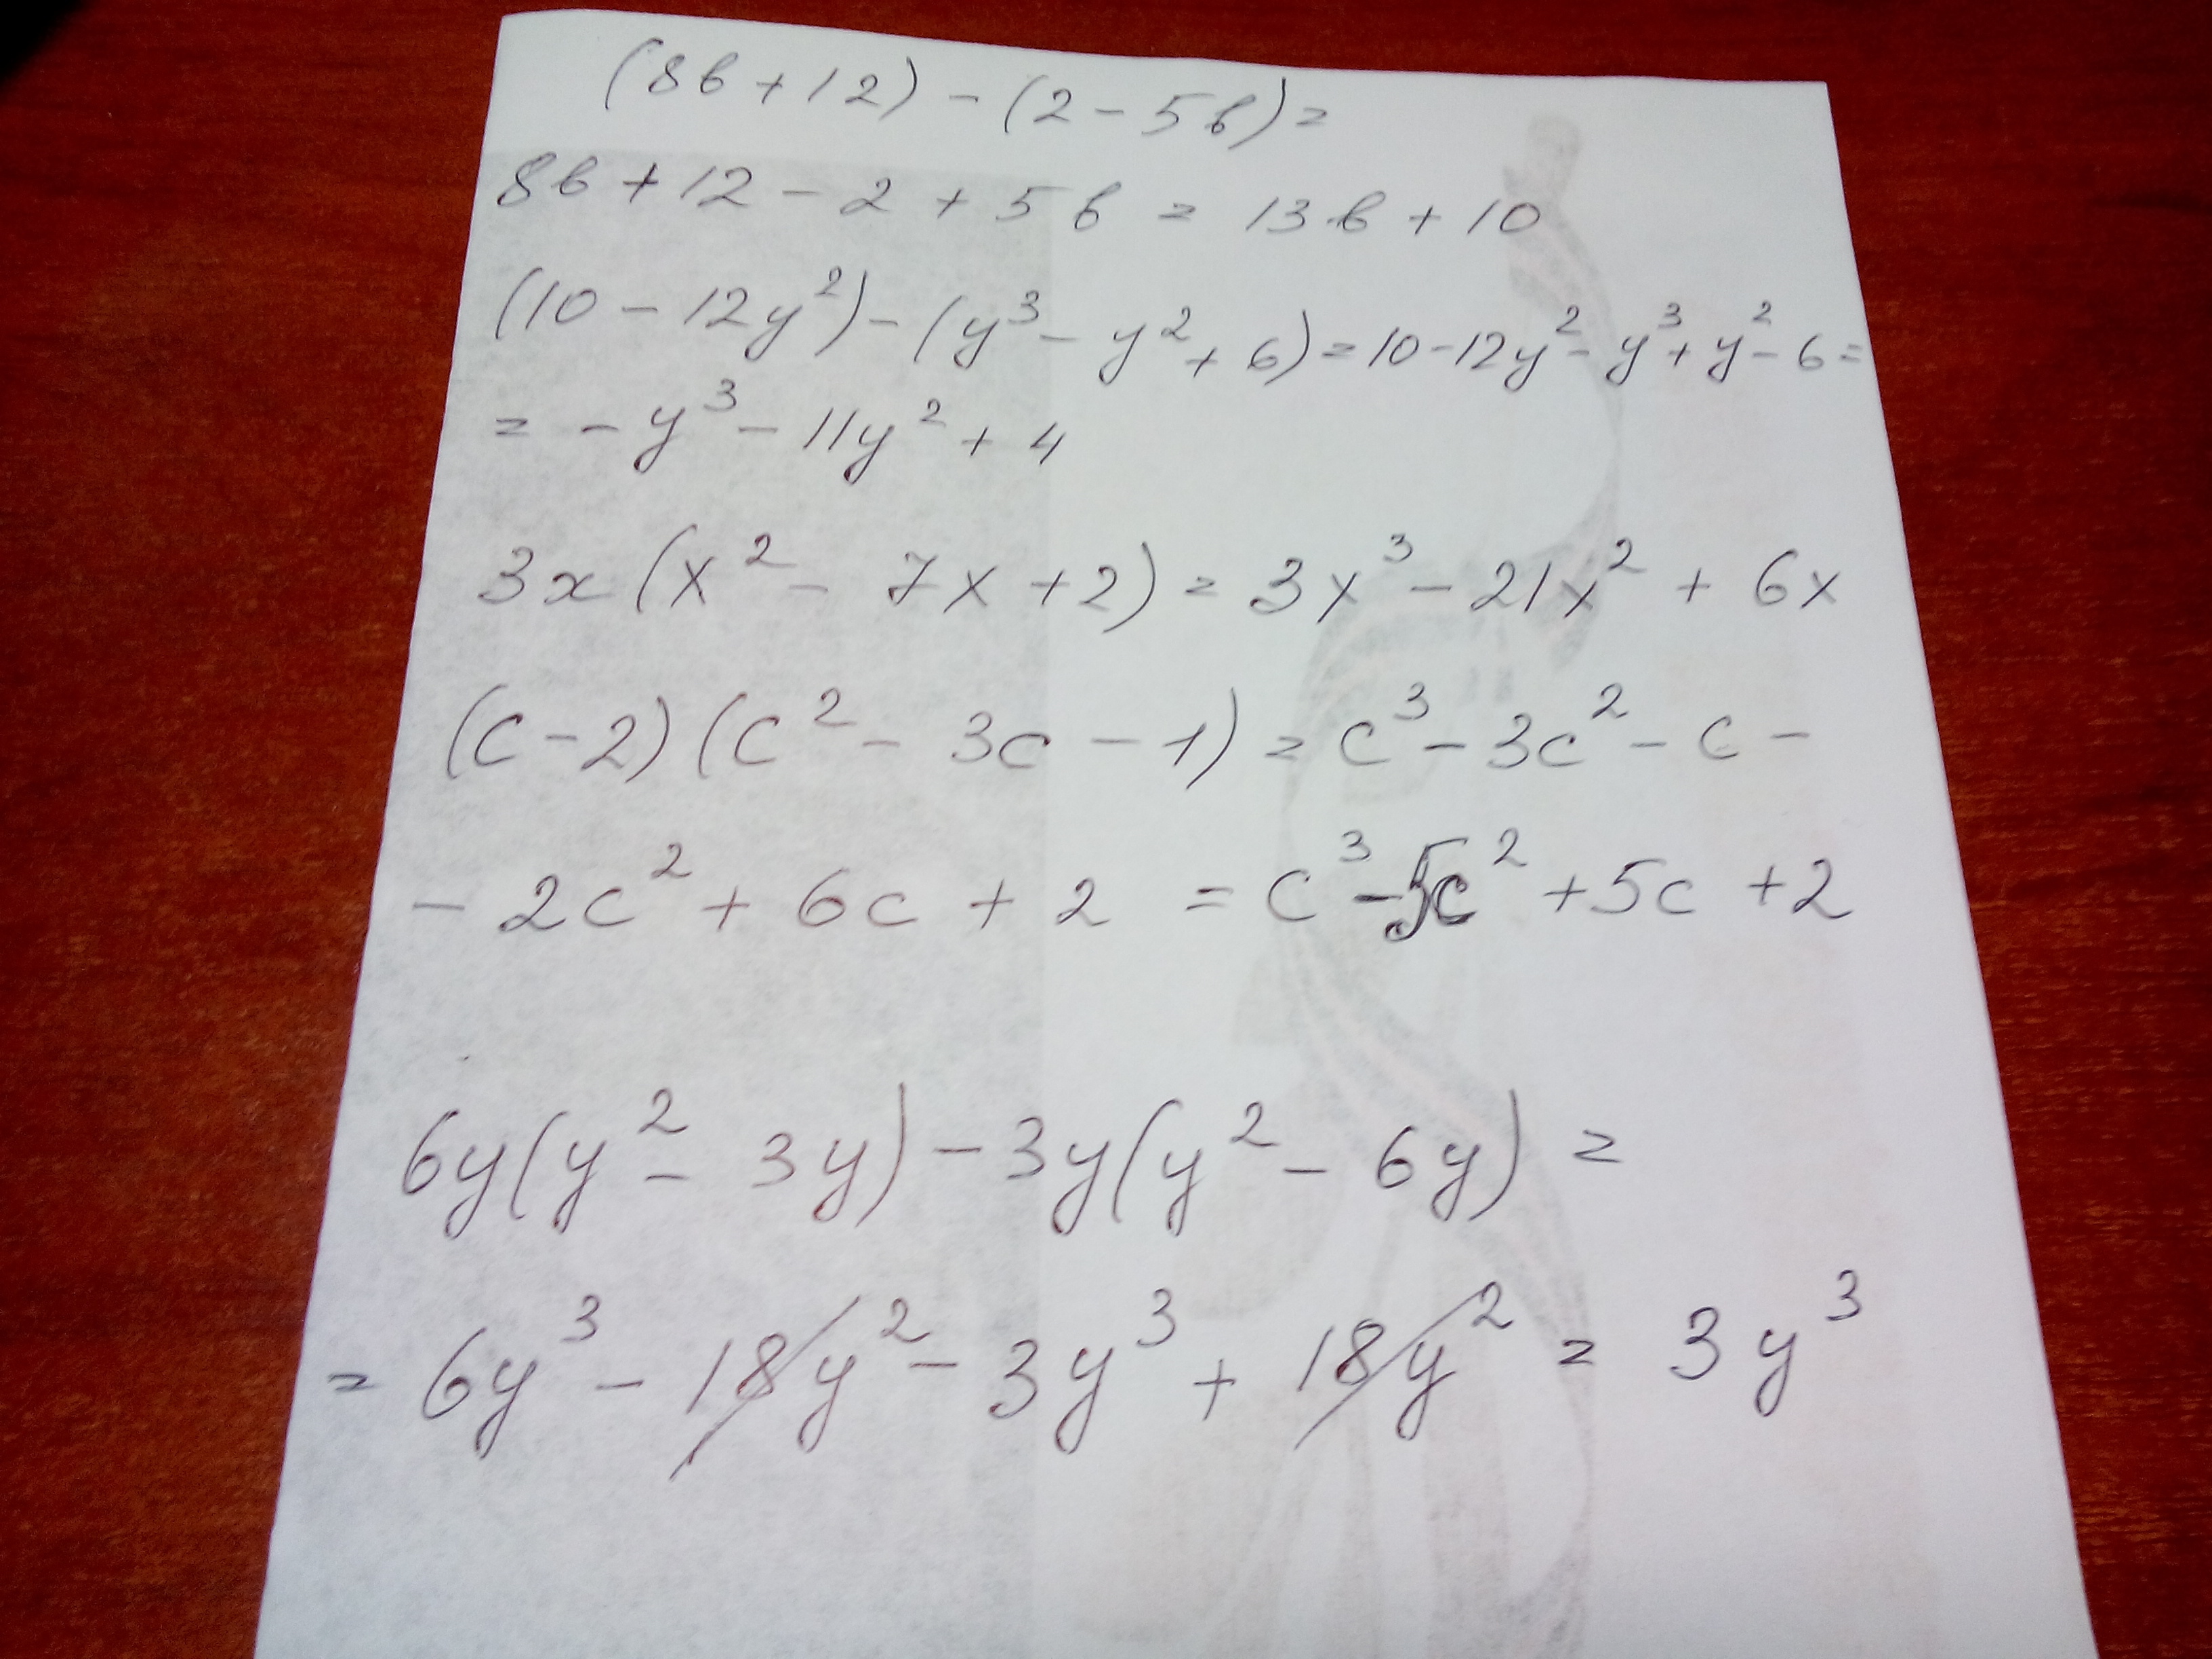 (8b+12)-(2-5b)=
8b+12-2+5b=13b+10
(10-12y²)-(y³-y²+6)=10-12y²-y³+y²-6=
=-y³-11y²+4
3x(x²-7x+2)=3x³-21x²+6x
(c-2)(c²-3c-1)=c³-3c²-c-
-2c²+6c+2=c³-5c²+5c+2
6y(y²-3y)-3y(y²-6y)=
=6y³-18y²-3y³+18y²=3y³